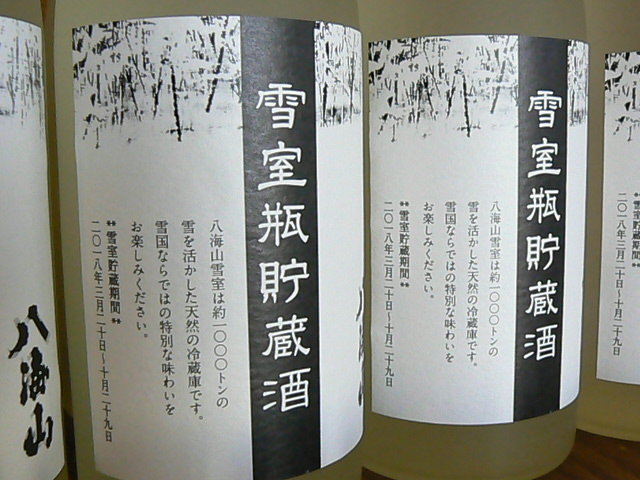 八海山
雪室瓶貯蔵酒
八海山雪室は約一〇〇〇トンの
雪を活かした天然の冷蔵庫です。
雪国ならではの特別な味わいを
お楽しみください。
** 雪室貯蔵期間 **
二〇一八年三月二十日〜十月二十九日
雪室瓶貯蔵酒
八海山雪室は約一〇〇〇トンの
雪を活かした天然の冷蔵庫です。
雪国ならではの特別な味わいを
お楽しみください。
** 雪室貯蔵期間 **
二〇一八年三月二十日〜十月二十九日